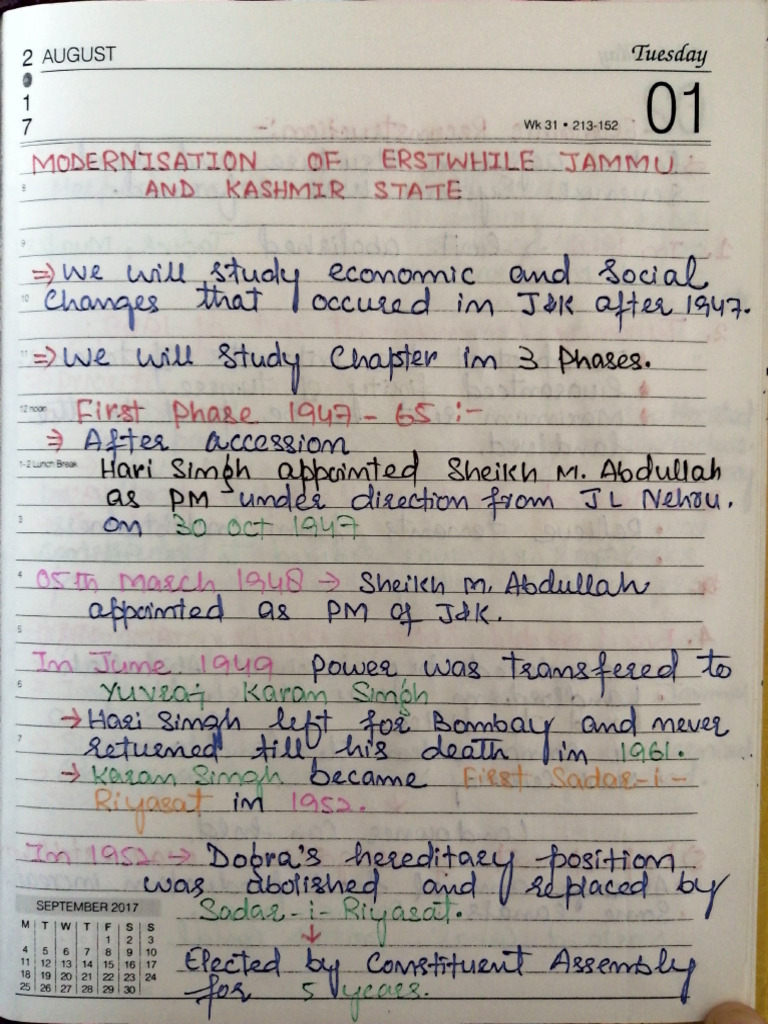 2 AUGUST Tuesday
0
1
7
Wk 31 • 213-152 01
MODERNISATION OF ERSTWHILE JAMMU
8 AND KASHMIR STATE
9
⇒ We will study economic and social
10 Changes that occured in J&K after 1947.
11 ⇒ We will study Chapter in 3 Phases.
12 noon First Phase 1947 - 65 :-
⇒ After accession
1-2 Lunch Break Hari Singh appointed Sheikh M. Abdullah
as PM under direction from J L Nehru.
3 on 30 Oct 1947
4 05th March 1948 → Sheikh M. Abdullah
appointed as PM of J&K.
5
In June 1949 Power was transfered to
6 Yuvraj Karan Singh
→ Hari Singh left for Bombay and never
7 returned till his death in 1961.
→ Karan Singh became First Sadar-i-
Riyasat in 1952.
In 1952 → Dogra's hereditary position
was abolished and replaced by
Sadar-i-Riyasat.
↓
Elected by Constituent Assembly
for 5 years.
SEPTEMBER 2017
M T W T F S S
1 2 3
4 5 6 7 8 9 10
11 12 13 14 15 16 17
18 19 20 21 22 23 24
25 26 27 28 29 30